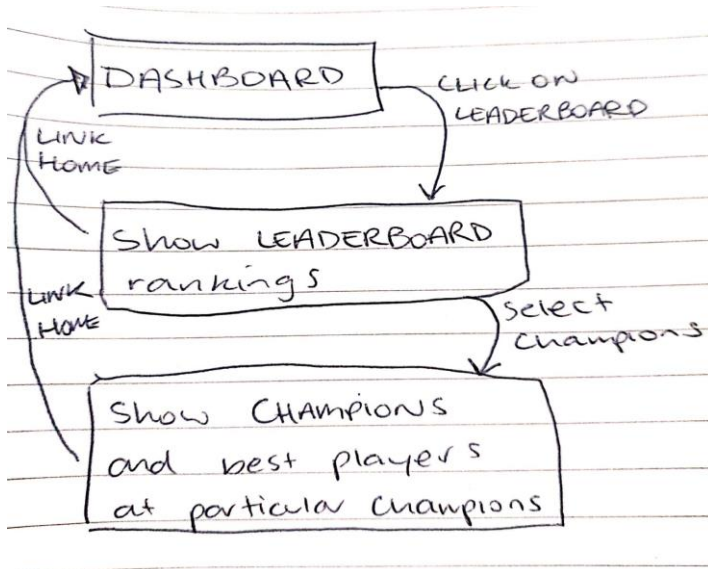 DASHBOARD
CLICK ON
LEADERBOARD
LINK
HOME
Show LEADERBOARD
rankings
LINK
HOME
Select
Champions
Show CHAMPIONS
and best players
at particular Champions